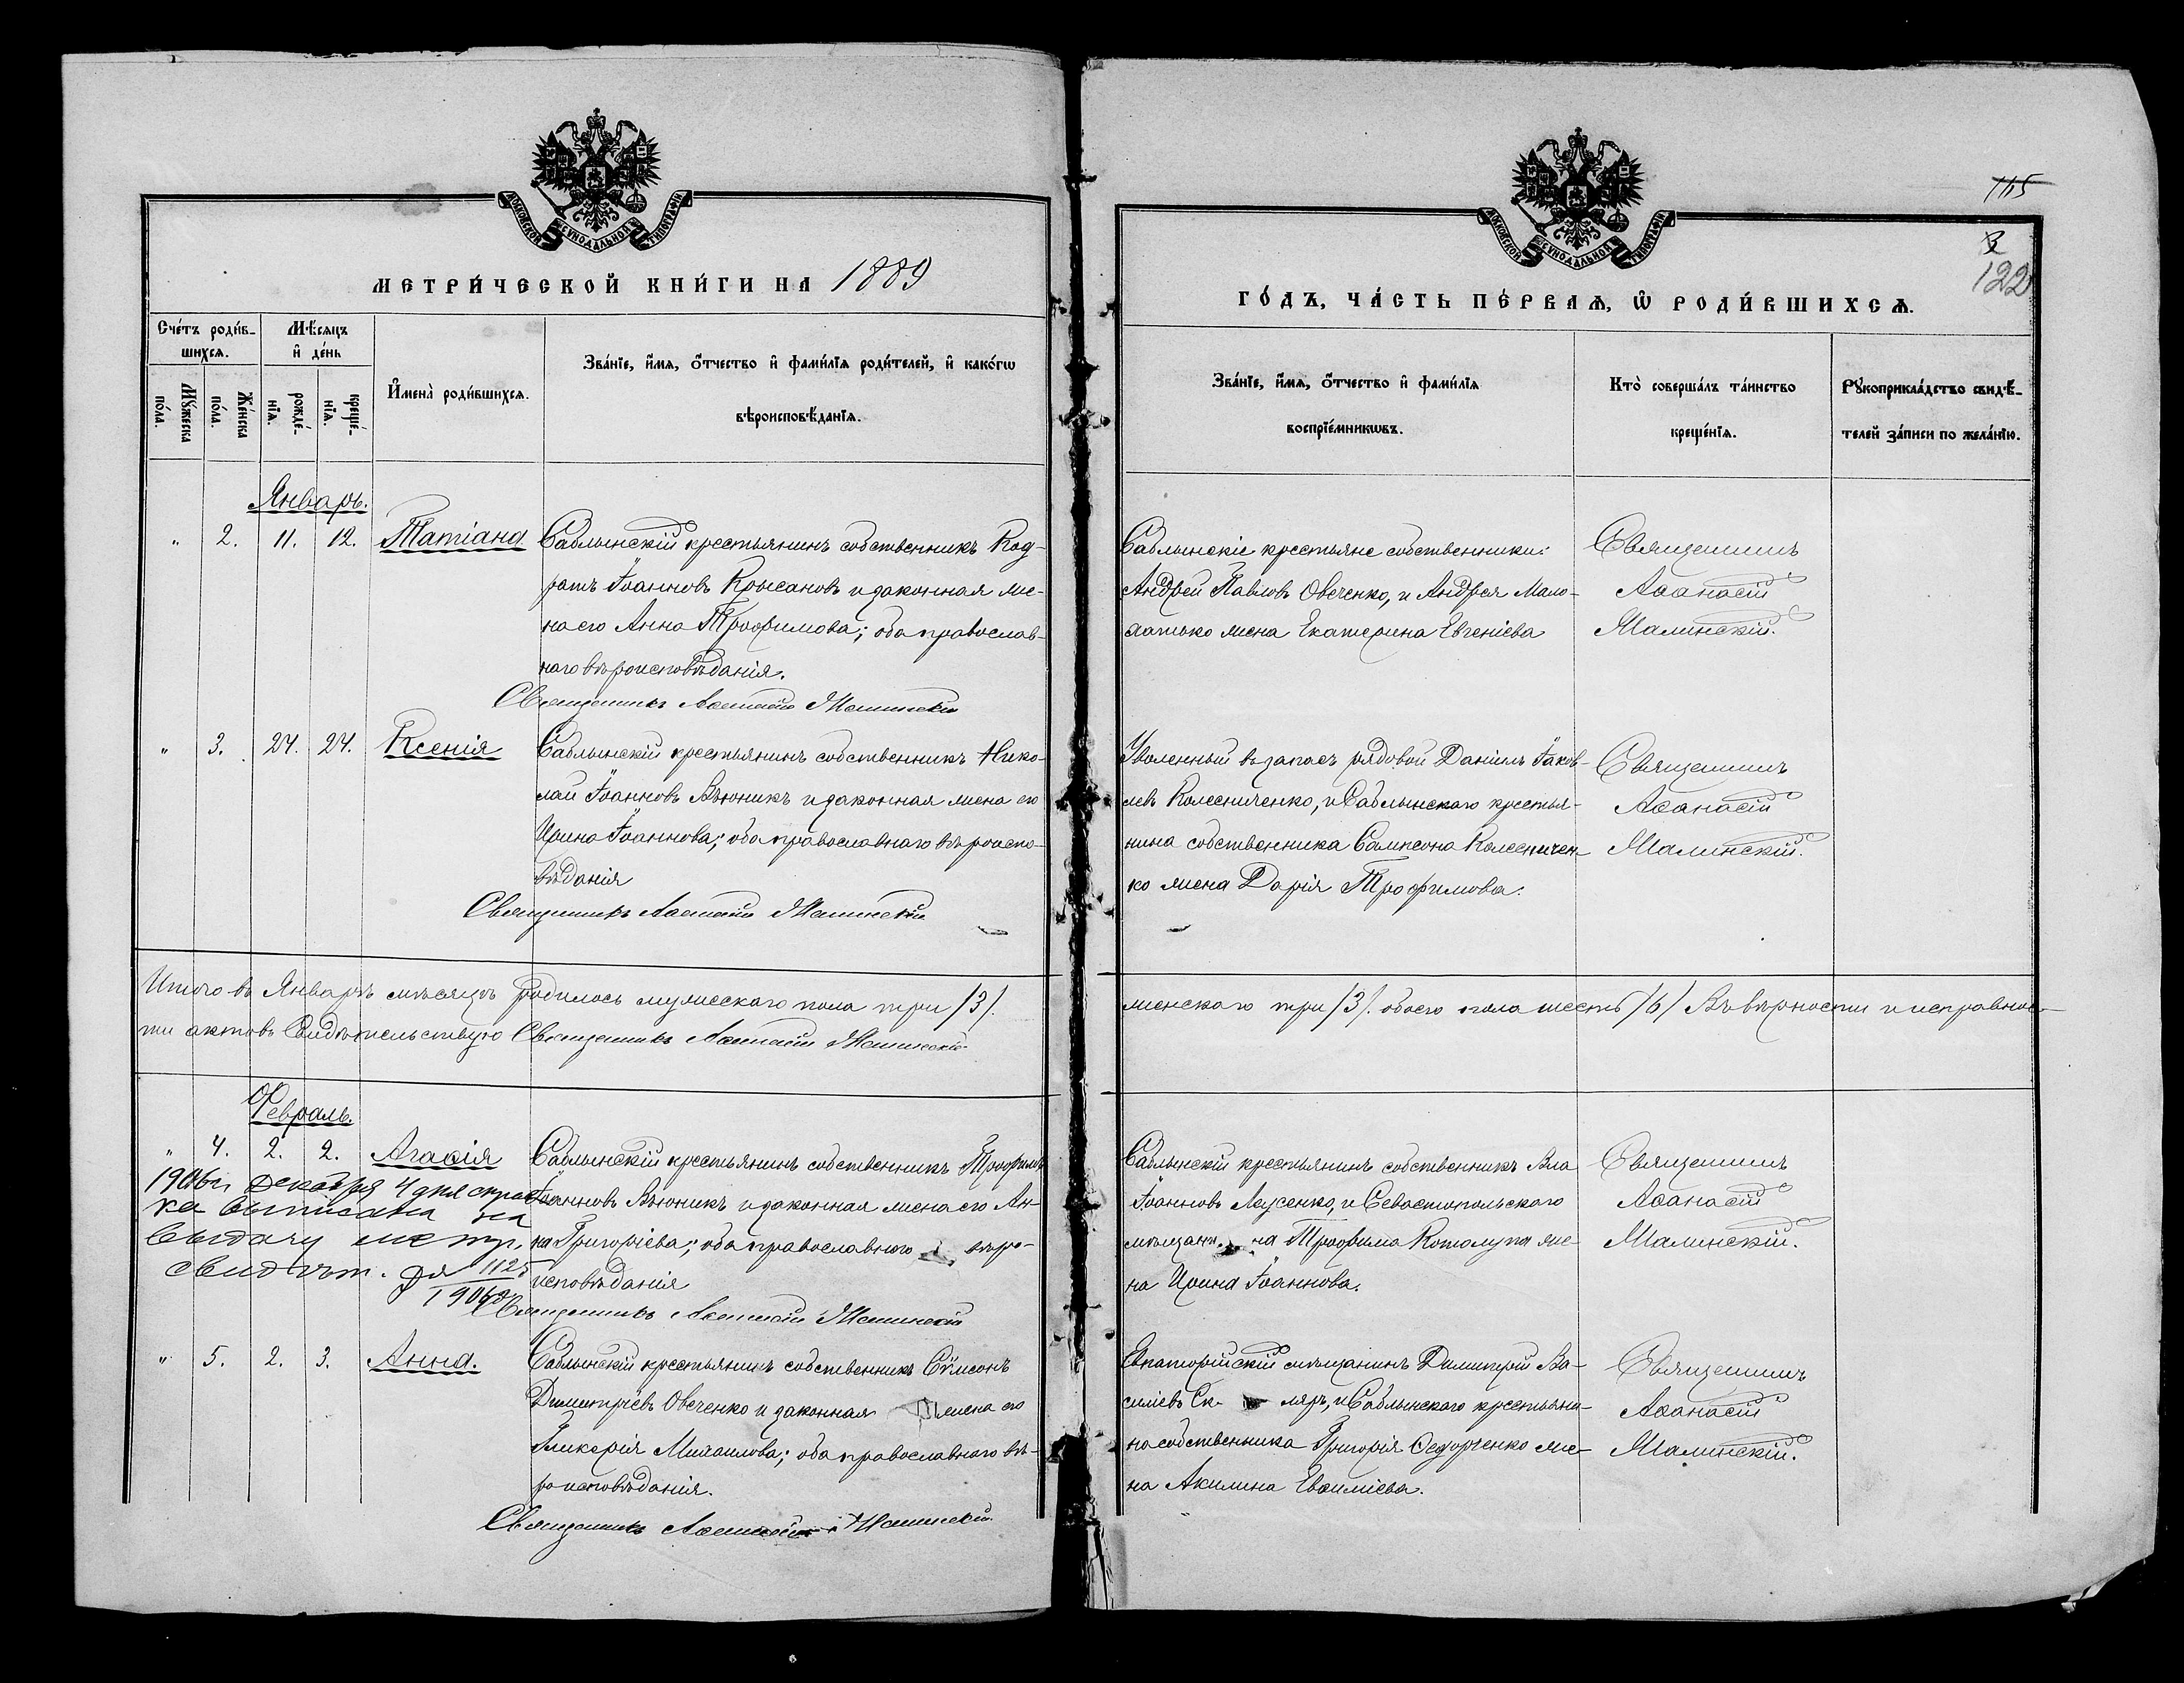 МОСКОВСКОЙ СѴНОДАЛЬНОЙ ТИПОГРАФІИ
МЕТРИ́ЧЕСКОЙ КНИ́ГИ НА 1889
Сче́тъ роди́в-
шихсѧ.
Мѣ́сѧцъ
и҆ де́нь
Мꙋ́жеска
по́ла.
Же́нска
по́ла.
рожде́-
нїѧ.
креще́-
нїѧ.
И҆мена̀ роди́вшихсѧ.
Зва́нїе, и҆́мѧ, ѻ҆́тчество и҆ фами́лїѧ роди́телей, и҆ како́гѡ
вѣроисповѣ́данїѧ.
Январь.
" 2. 11. 12. Татіана
Саблынскій крестьянинъ собственникъ Код-
ратъ Іоанновъ Крысановъ и законная же-
на его Анна Трофимова; оба православ-
наго вѣроисповѣданія.
Священникъ Аѳанасій Малинскій
" 3. 24. 24. Ксенія
Саблынскій крестьянинъ собственникъ Нико-
лай Іоанновъ Вьюникъ и законная жена его
Ирина Іоаннова; оба православнаго вѣроиспо-
вѣданія
Священникъ Аѳанасій Малинскій
Итого въ Январѣ мѣсяцѣ родилось мужескаго пола три /3/.
ти актовъ свидѣтельствую Священникъ Аѳанасій Малинскій
Февраль.
" 4. 2. 2. Агаѳія
Саблынскій крестьянинъ собственникъ Трофимъ
Іоанновъ Вьюникъ и законная жена его Ан-
на Григоріева; оба православнаго вѣро-
исповѣданія
Священникъ Аѳанасій Малинскій
1906 г. декабря 4 дня справ
ка выписана на
выдачу метр.
свидѣт. 1125
1906
" 5. 2. 3. Анна.
Саблынскій крестьянинъ собственникъ Сѵмеонъ
Димитріевъ Овеченко и законная жена его
Гликерія Михаилова; оба православнаго вѣ-
роисповѣданія.
Священникъ Аѳанасій Малинскій
МОСКОВСКОЙ СѴНОДАЛЬНОЙ ТИПОГРАФІИ
115
3
122
ГО́ДЪ, ЧА́СТЬ ПЕ́РВАѦ, Ѡ҆ РОДИ́ВШИХСѦ.
Зва́нїе, и҆́мѧ, ѻ҆́тчество и҆ фами́лїѧ
воспрїе́мникѡвъ.
Кто̀ соверша́лъ та́инство
креще́нїѧ.
Рꙋкоприкла́дство свидѣ́-
телей за́писи по жела́нїю.
Саблынскіе крестьяне собственники:
Андрей Павловъ Овеченко, и Андрея Мало-
хатько жена Екатерина Евгеніева
Священникъ
Аѳанасій
Малинскій.
Уволенный въ запасъ рядовой Даніилъ Іаков-
левъ Колесниченко, и Саблынскаго крестья-
нина собственника Сампсона Колесничен-
ко жена Дарія Трофимова.
Священникъ
Аѳанасій
Малинскій.
женскаго три /3/. обоего пола шесть /6/ Въ вѣрности и исправнос-
Саблынскій крестьянинъ собственникъ
Іоанновъ и Севастопольскаго
мѣщан на Трофима же-
на Ирина Іоаннова.
Священникъ
Аѳанасій
Малинскій.
Евпаторійскій мѣщанинъ Димитрій Ва-
силіевъ Ск ляръ, и Саблынскаго крестьяни-
на собственника Григорія Ѳедорченко же-
на Акилина Евѳиміева.
Священникъ
Аѳанасій
Малинскій.